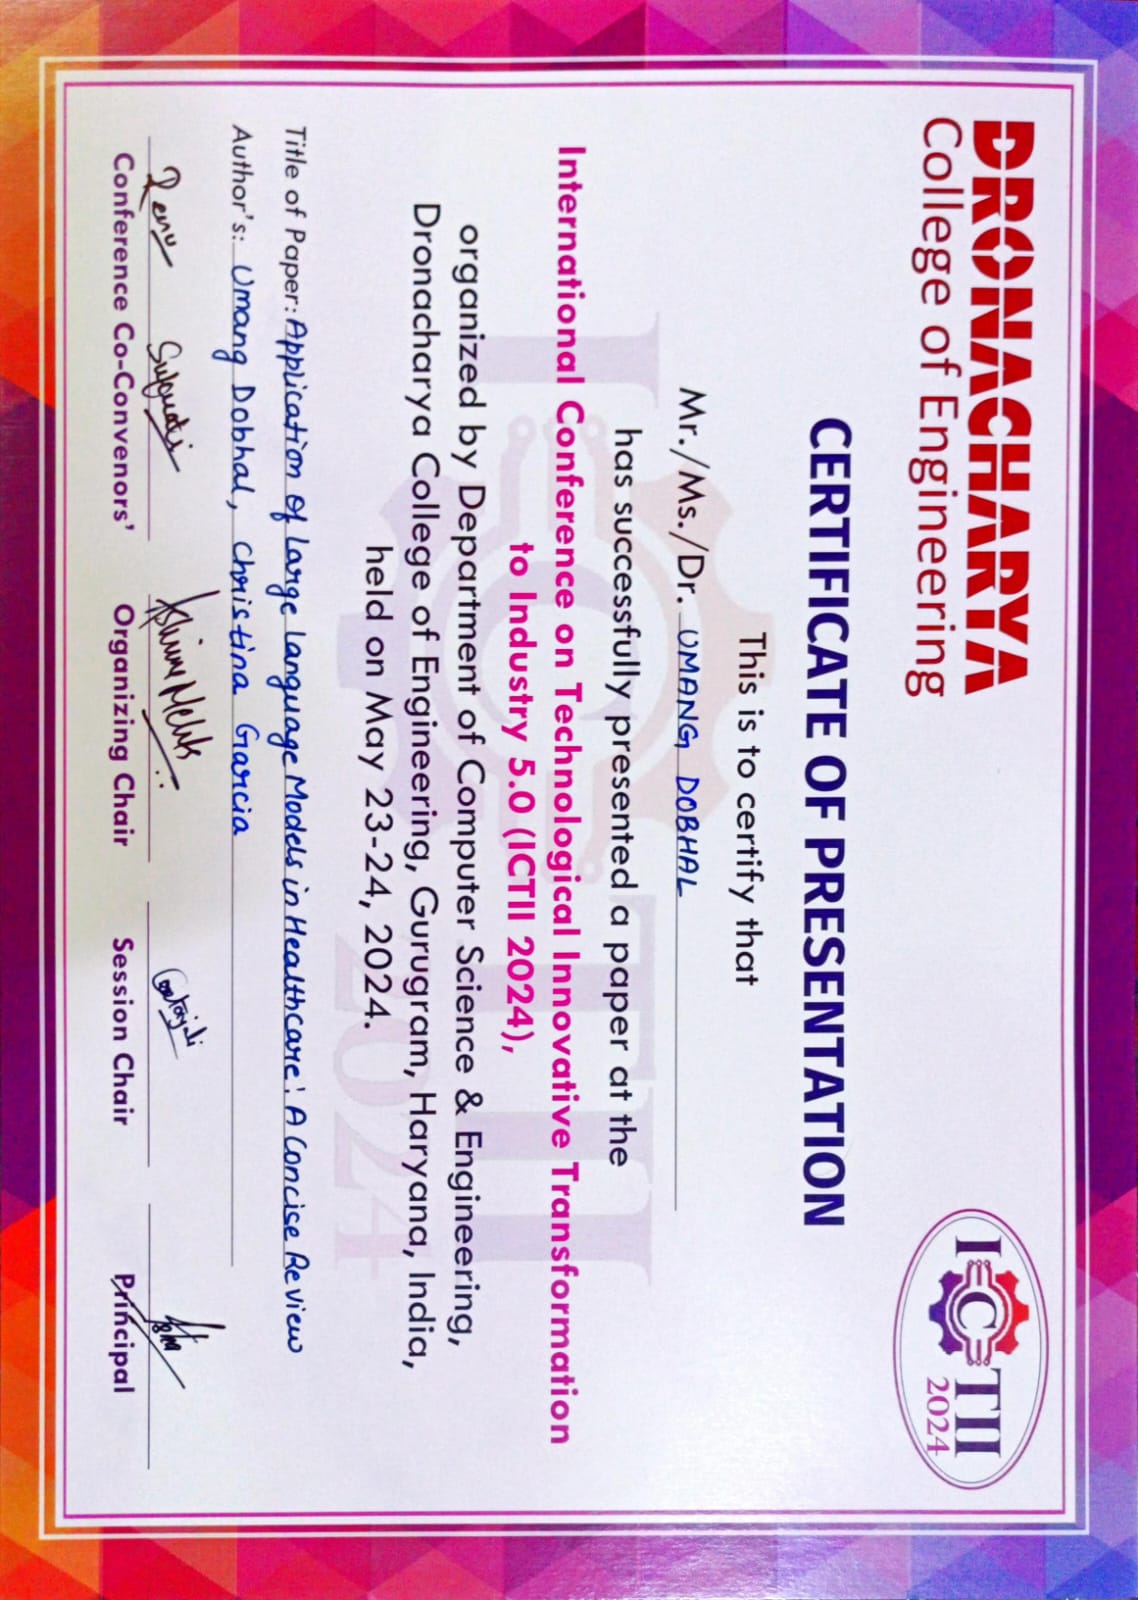 DRONACHARYA
College of Engineering
ICTII
2024
CERTIFICATE OF PRESENTATION
This is to certify that
Mr./Ms./Dr. UMANG DOBHAL
has successfully presented a paper at the
International Conference on Technological Innovative Transformation
to Industry 5.0 (ICTII 2024),
organized by Department of Computer Science & Engineering,
Dronacharya College of Engineering, Gurugram, Haryana, India,
held on May 23-24, 2024.
Title of Paper: Application Of Large Language Models in Healthcare: A Concise Review
Author's: Umang Dobhal, Christina Garcia
Renu
Conference Co-Convenors' Organizing Chair Session Chair Principal